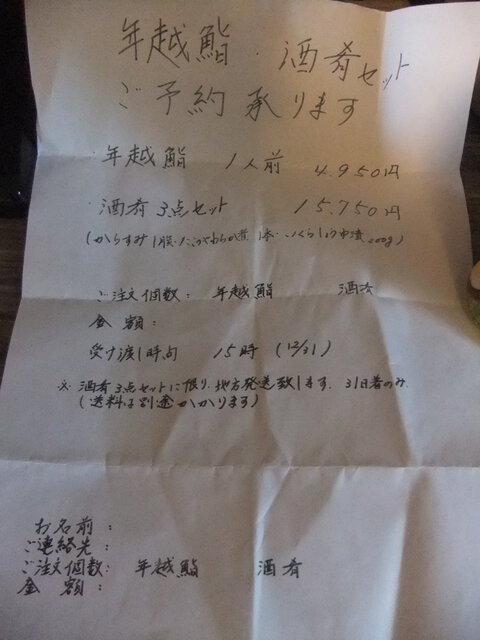 年越鮨・酒肴セット
ご予約承ります
・年越鮨 1人前 4.950円
・酒肴3点セット 15.750円
(からすみ1腹・たこやわらか煮1本・いくらしょうゆ漬200g)
ご注文個数: 年越鮨 酒肴
金額:
受け渡し時旬 15時 (12/31)
※ 酒肴3点セットに限り、地方発送致します. 31日着のみ.
(送料は別途かかります)
お名前:
ご連絡先:
ご注文個数: 年越鮨 酒肴
金額: